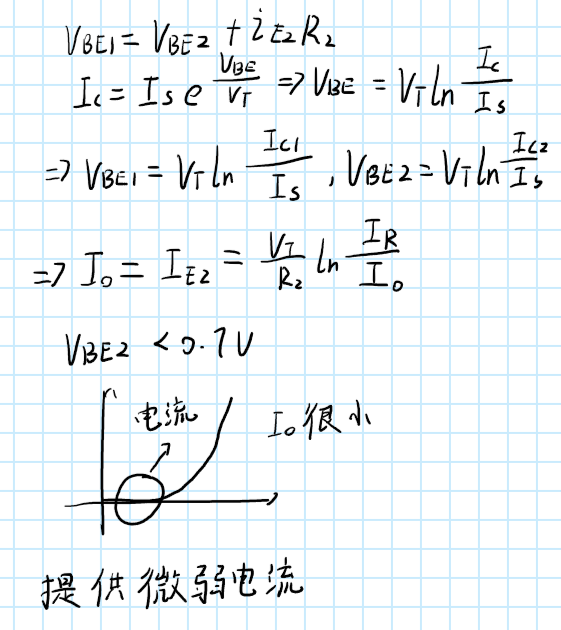 V_BE1 = V_BE2 + i_E2 R_2
I_c = I_s e^(V_BE/V_T) ⇒ V_BE = V_T ln (I_c/I_s)
⇒ V_BE1 = V_T ln (I_C1/I_S), V_BE2 = V_T ln (I_C2/I_s)
⇒ I_o = I_E2 = (V_T/R_2) ln (I_R/I_o)
V_BE2 < 0.7V
电流 I_o很小
提供微弱电流